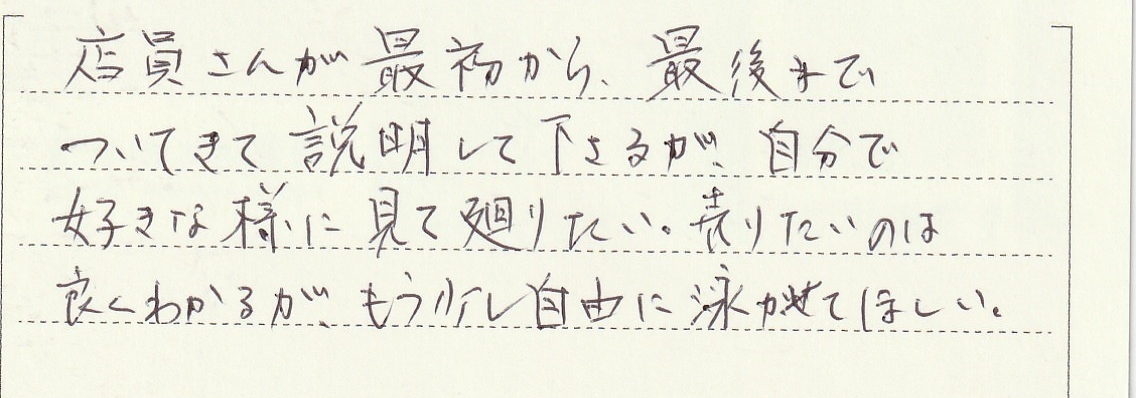 店員さんが最初から、最後まで
ついてきて説明して下さるが、自分で
好きな様に見て廻りたい。売りたいのは
良くわかるが、もう少し自由に泳がせてほしい。